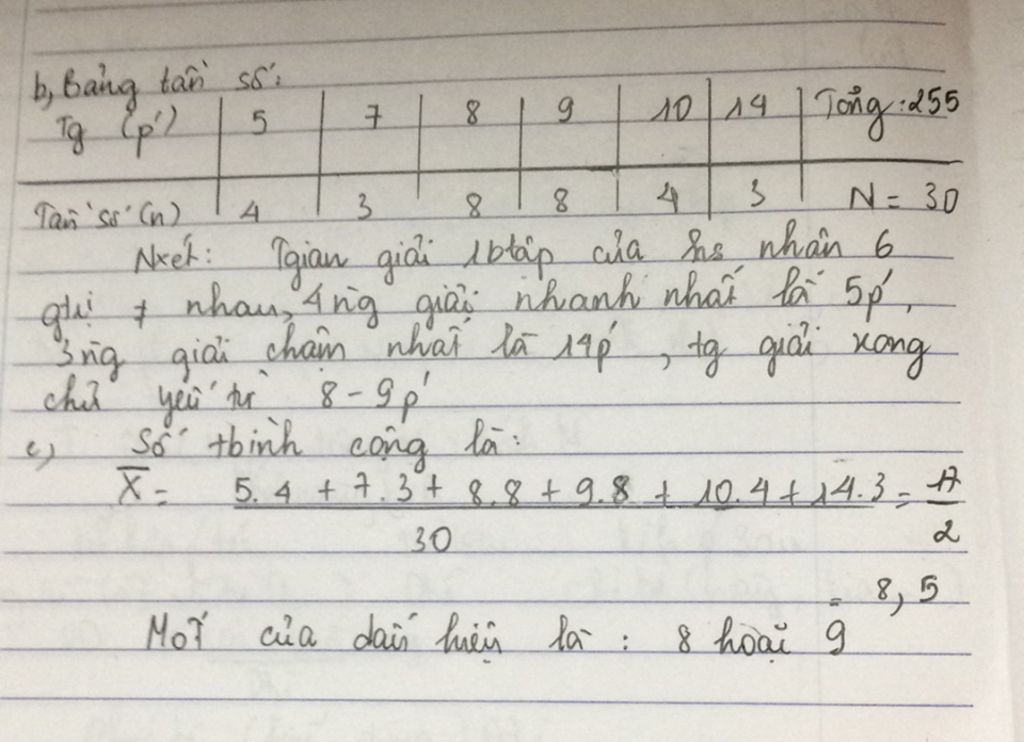 b, Bảng tần số:
Tg (p') 5 7 8 9 10 14 Tổng: 255
Tần số (n) 4 3 8 8 4 3 N = 30
Nxét: Tgian giải 1 btập của hs nhận 6
gtrị ≠ nhau, 4 ng giải nhanh nhất là 5p',
3 ng giải chậm nhất là 14p', tg giải xong
chủ yếu từ 8 - 9p'
c) Số tbình cộng là:
X̄ = 5.4 + 7.3 + 8.8 + 9.8 + 10.4 + 14.3 / 30 = 17 / 2
= 8,5
Mốt của dấu hiệu là: 8 hoặc 9